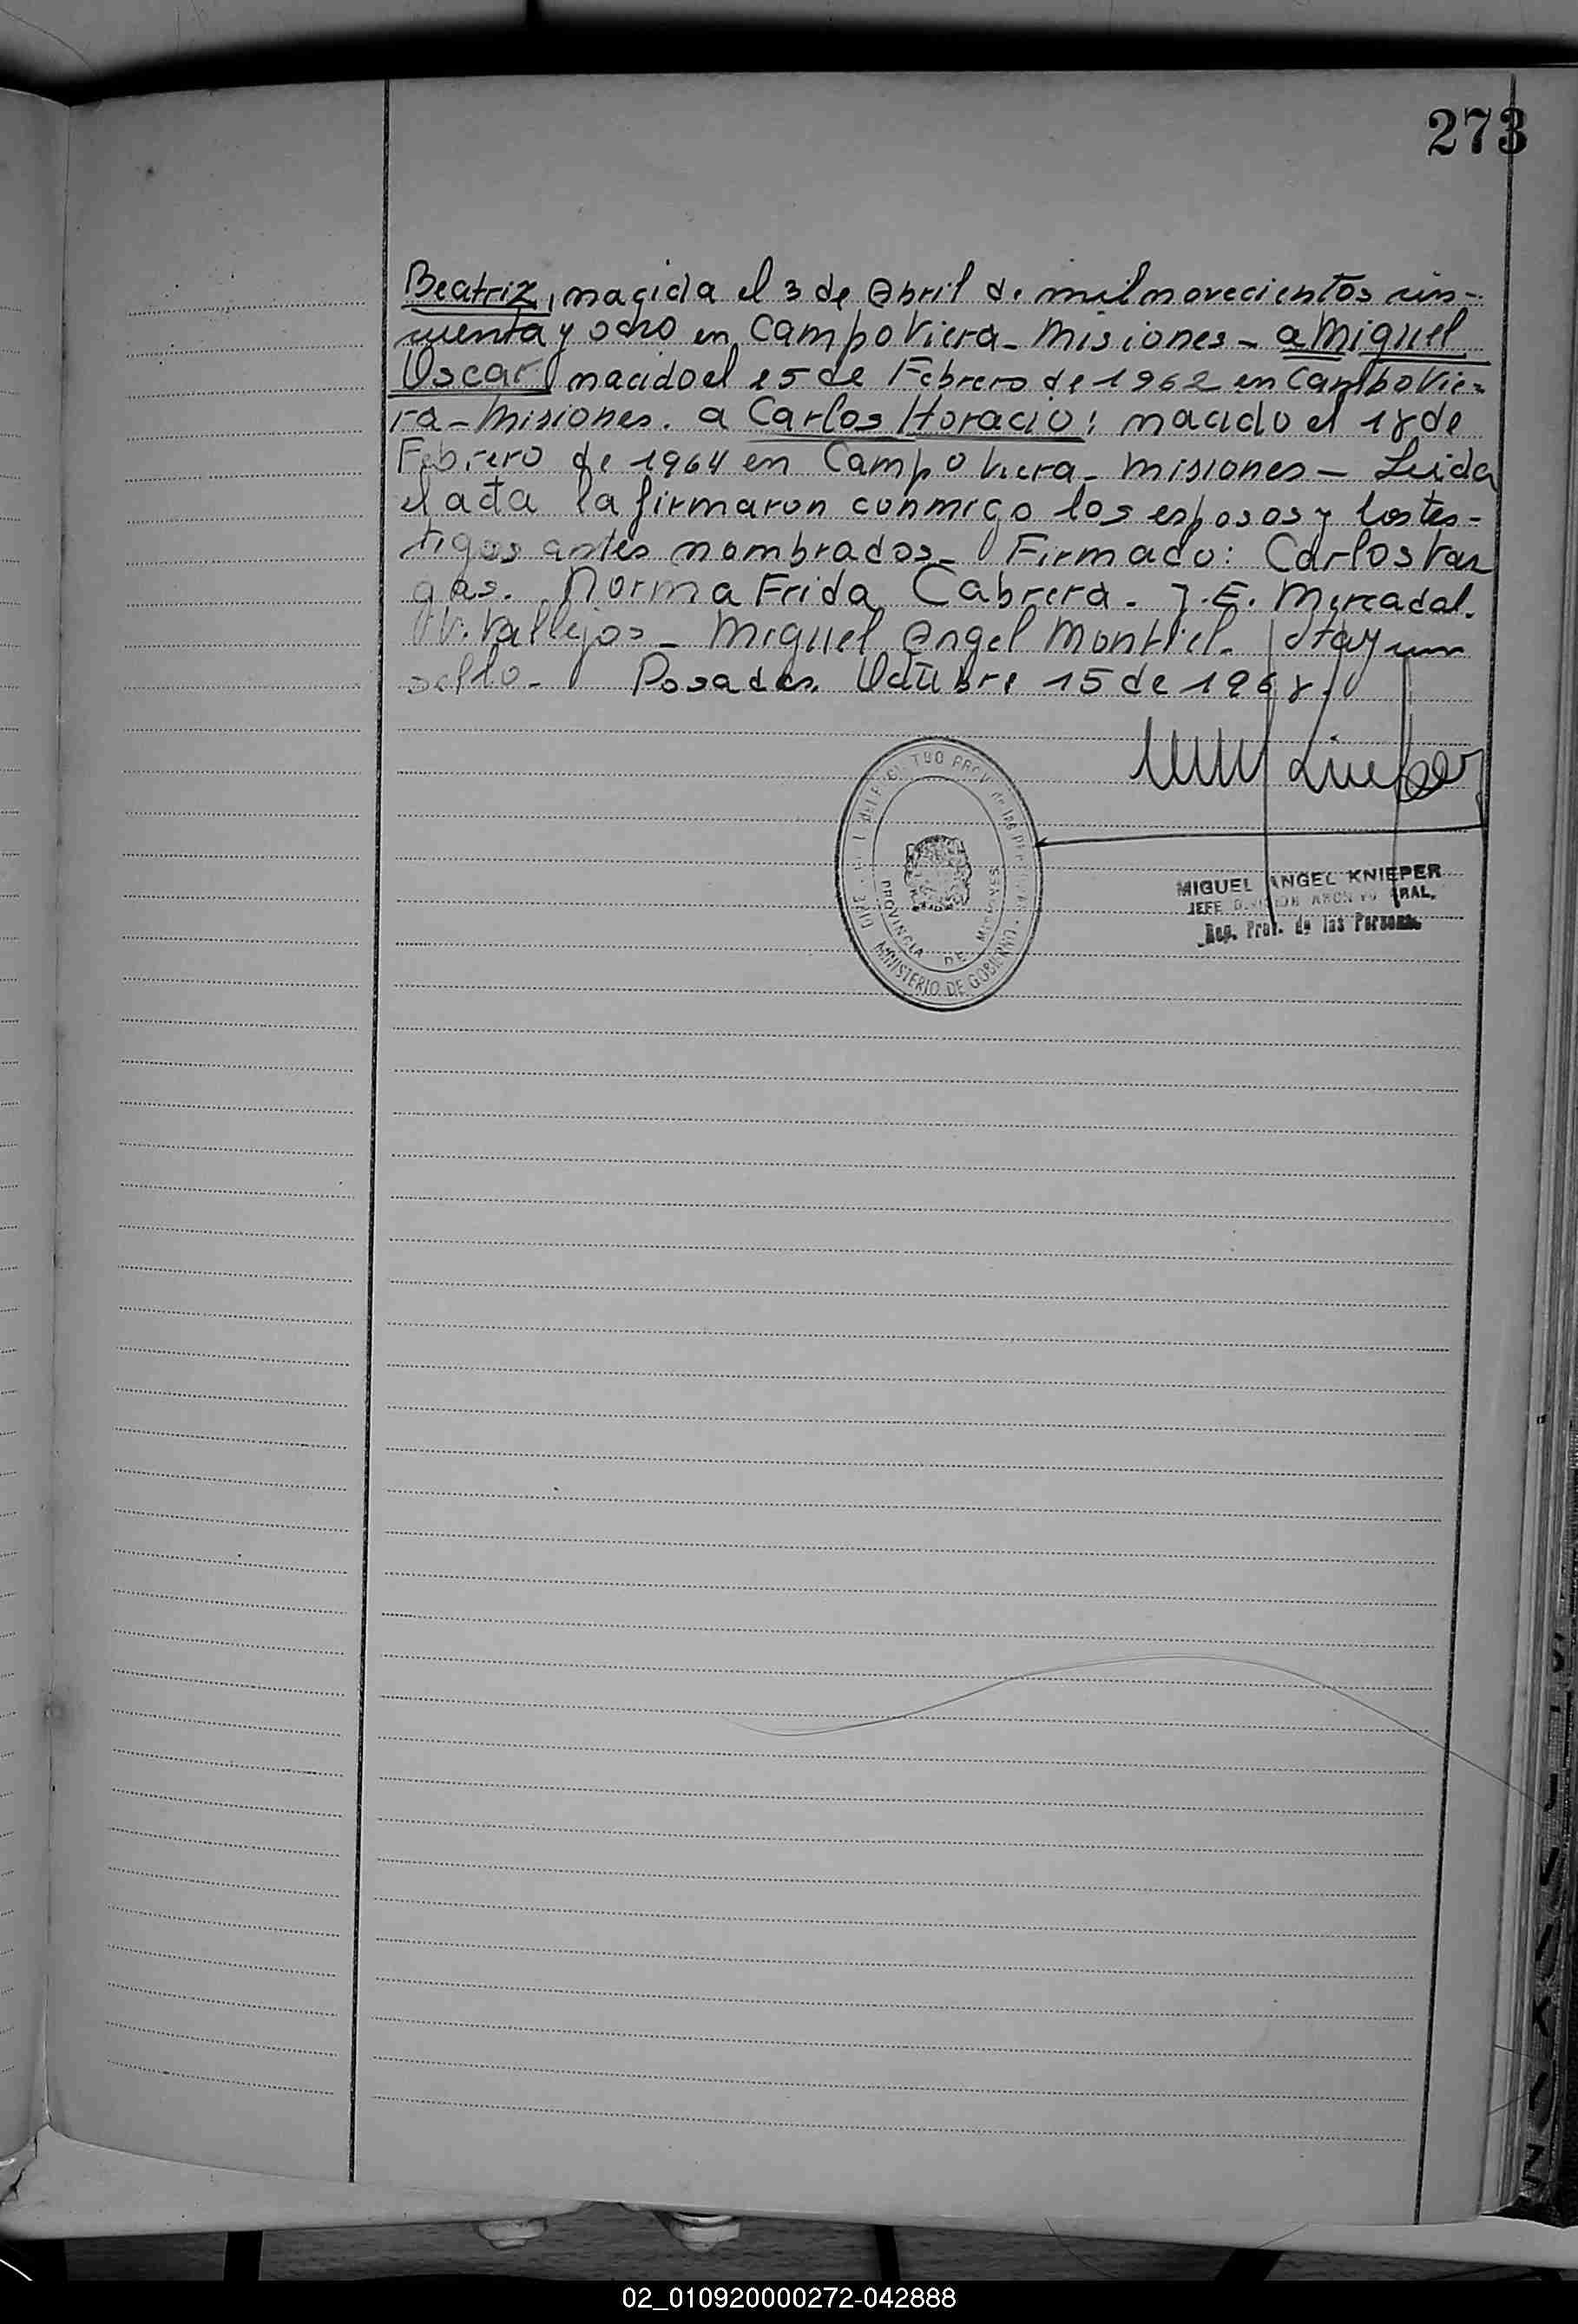 273
Beatriz, nacida el 3 de Abril de mil novecientos cin-
cuenta y ocho en Campo Viera - Misiones - a Miguel
Oscar nacido el 25 de Febrero de 1962 en Campo Vie-
ra - Misiones. a Carlos Horacio: nacido el 18 de
Febrero de 1964 en Campo Viera - Misiones - Leida
el acta la firmaron conmigo los esposos y los tes-
tigos antes nombrados - Firmado: Carlos Var
gas. Norma Frida Cabrera. J. E. Mercadal.
Vallejos - Miguel Angel Montiel. Hay un
sello - Posadas, Octubre 15 de 1968.
PROVINCIA DE MISIONES
MINISTERIO DE GOBIERNO
MIGUEL ANGEL KNIEPER
JEFE DIVISION ARCHIVO GRAL.
Reg. Prov. de las Personas
02_010920000272-042888